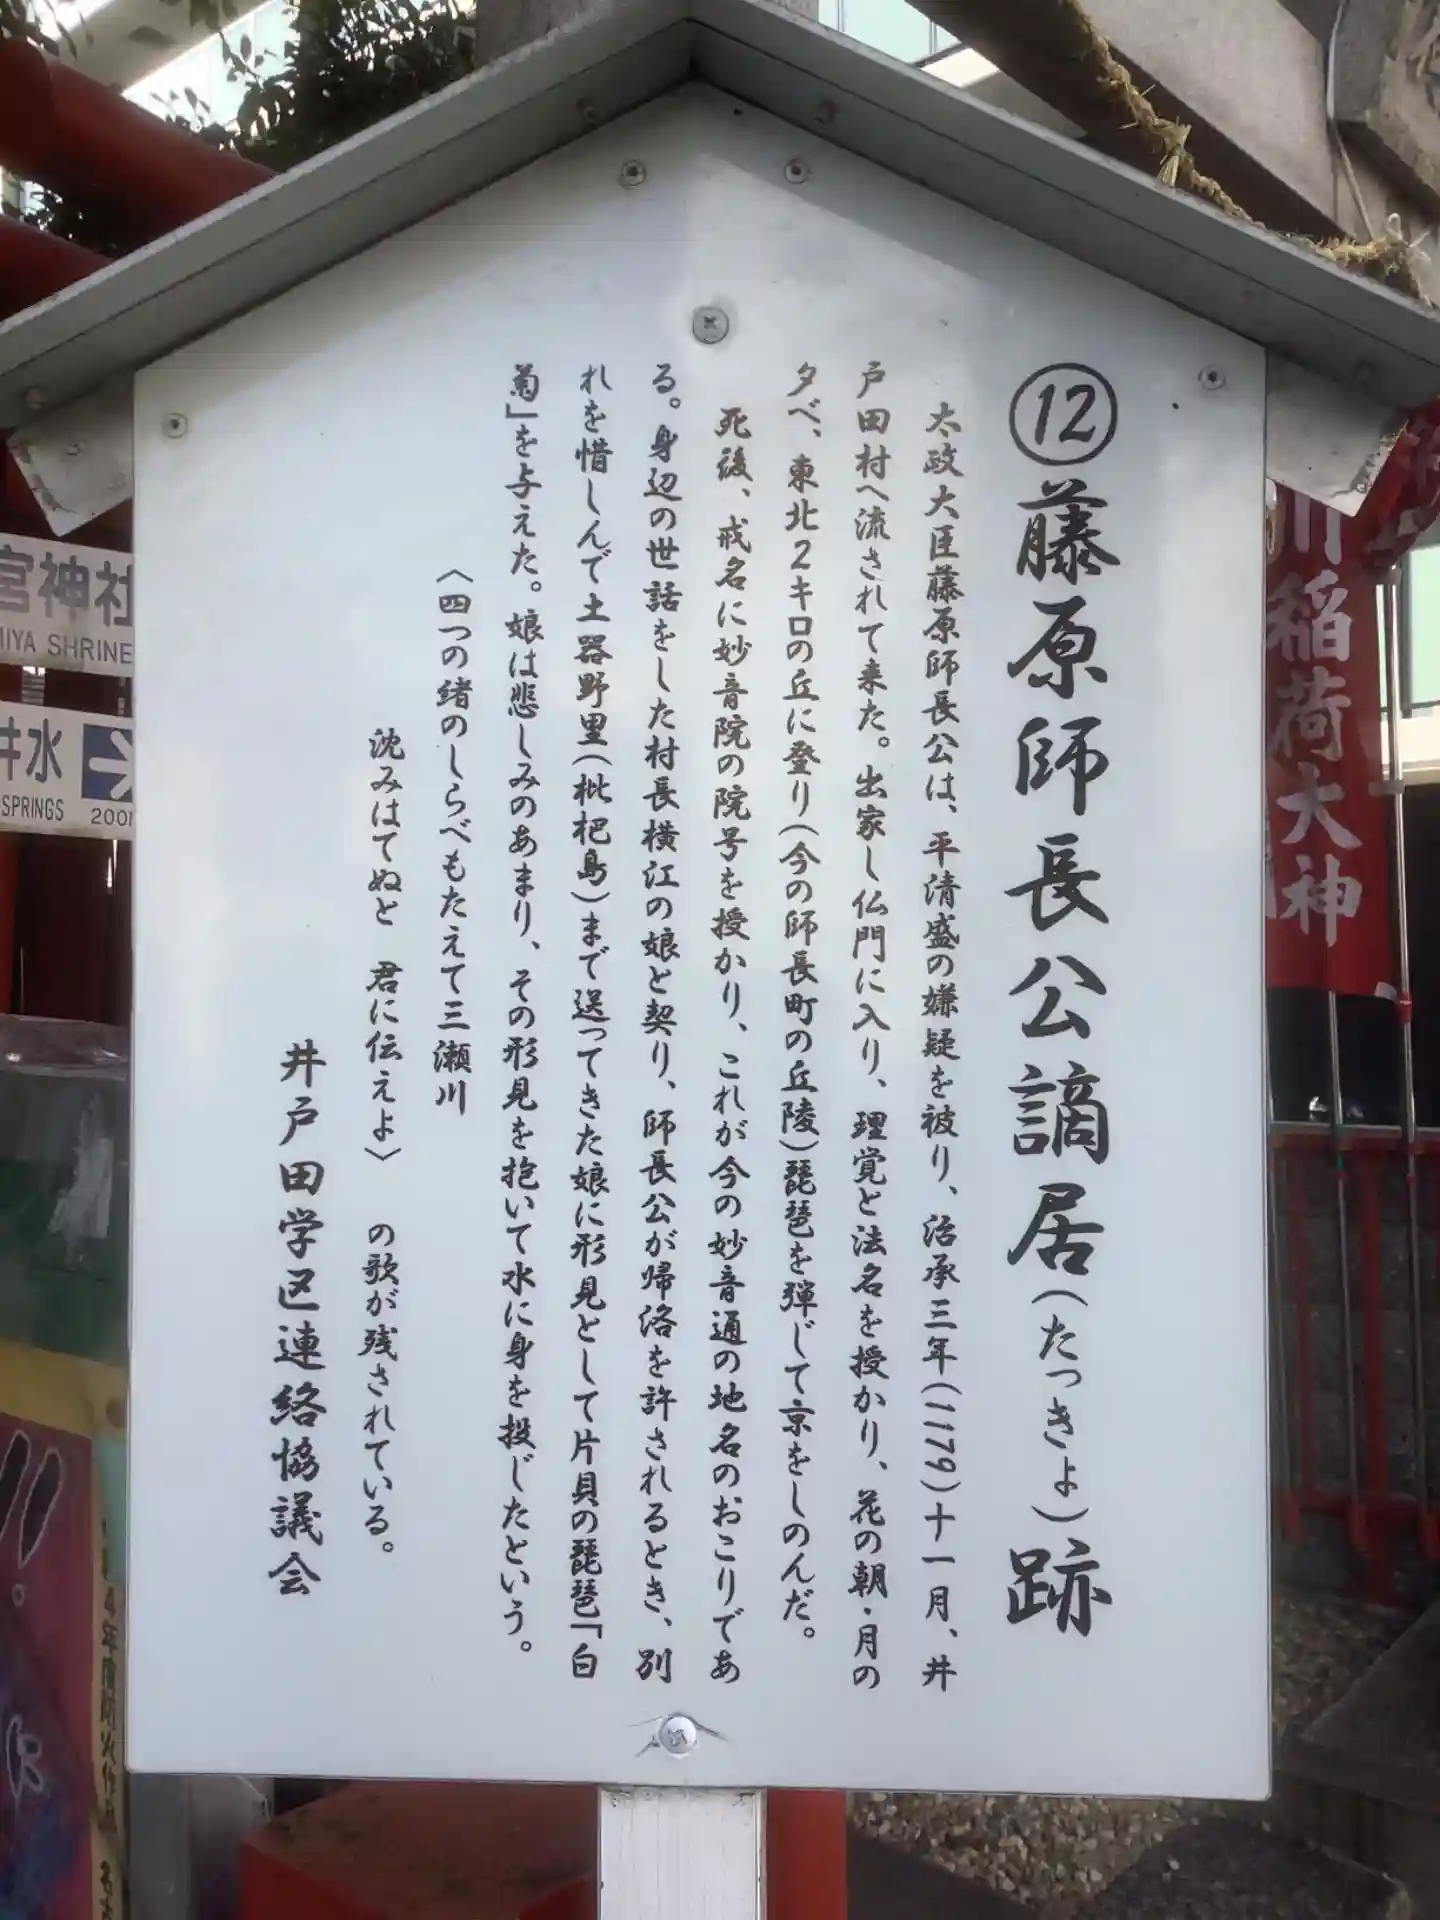 ⑫藤原師長公謫居(たっきょ)跡
太政大臣藤原師長公は、平清盛の嫌疑を被り、治承三年(1179)十一月、井
戸田村へ流されて来た。出家し仏門に入り、理覚と法名を授かり、花の朝・月の
夕べ、東北2キロの丘に登り(今の師長町の丘陵)琵琶を弾じて京をしのんだ。
死後、戒名に妙音院の院号を授かり、これが今の妙音通の地名のおこりであ
る。身辺の世話をした村長横江の娘と契り、師長公が帰洛を許されるとき、別
れを惜しんで土器野里(枇杷島)まで送ってきた娘に形見として片貝の琵琶「白
菊」を与えた。娘は悲しみのあまり、その形見を抱いて水に身を投じたという。
〈四つの緒のしらべもたえて三瀬川
沈みはてぬと 君に伝えよ〉 の歌が残されている。
井戸田学区連絡協議会
川稲荷大神
宮神社
MIYA SHRINE
井水
SPRINGS 200
4年度防火作